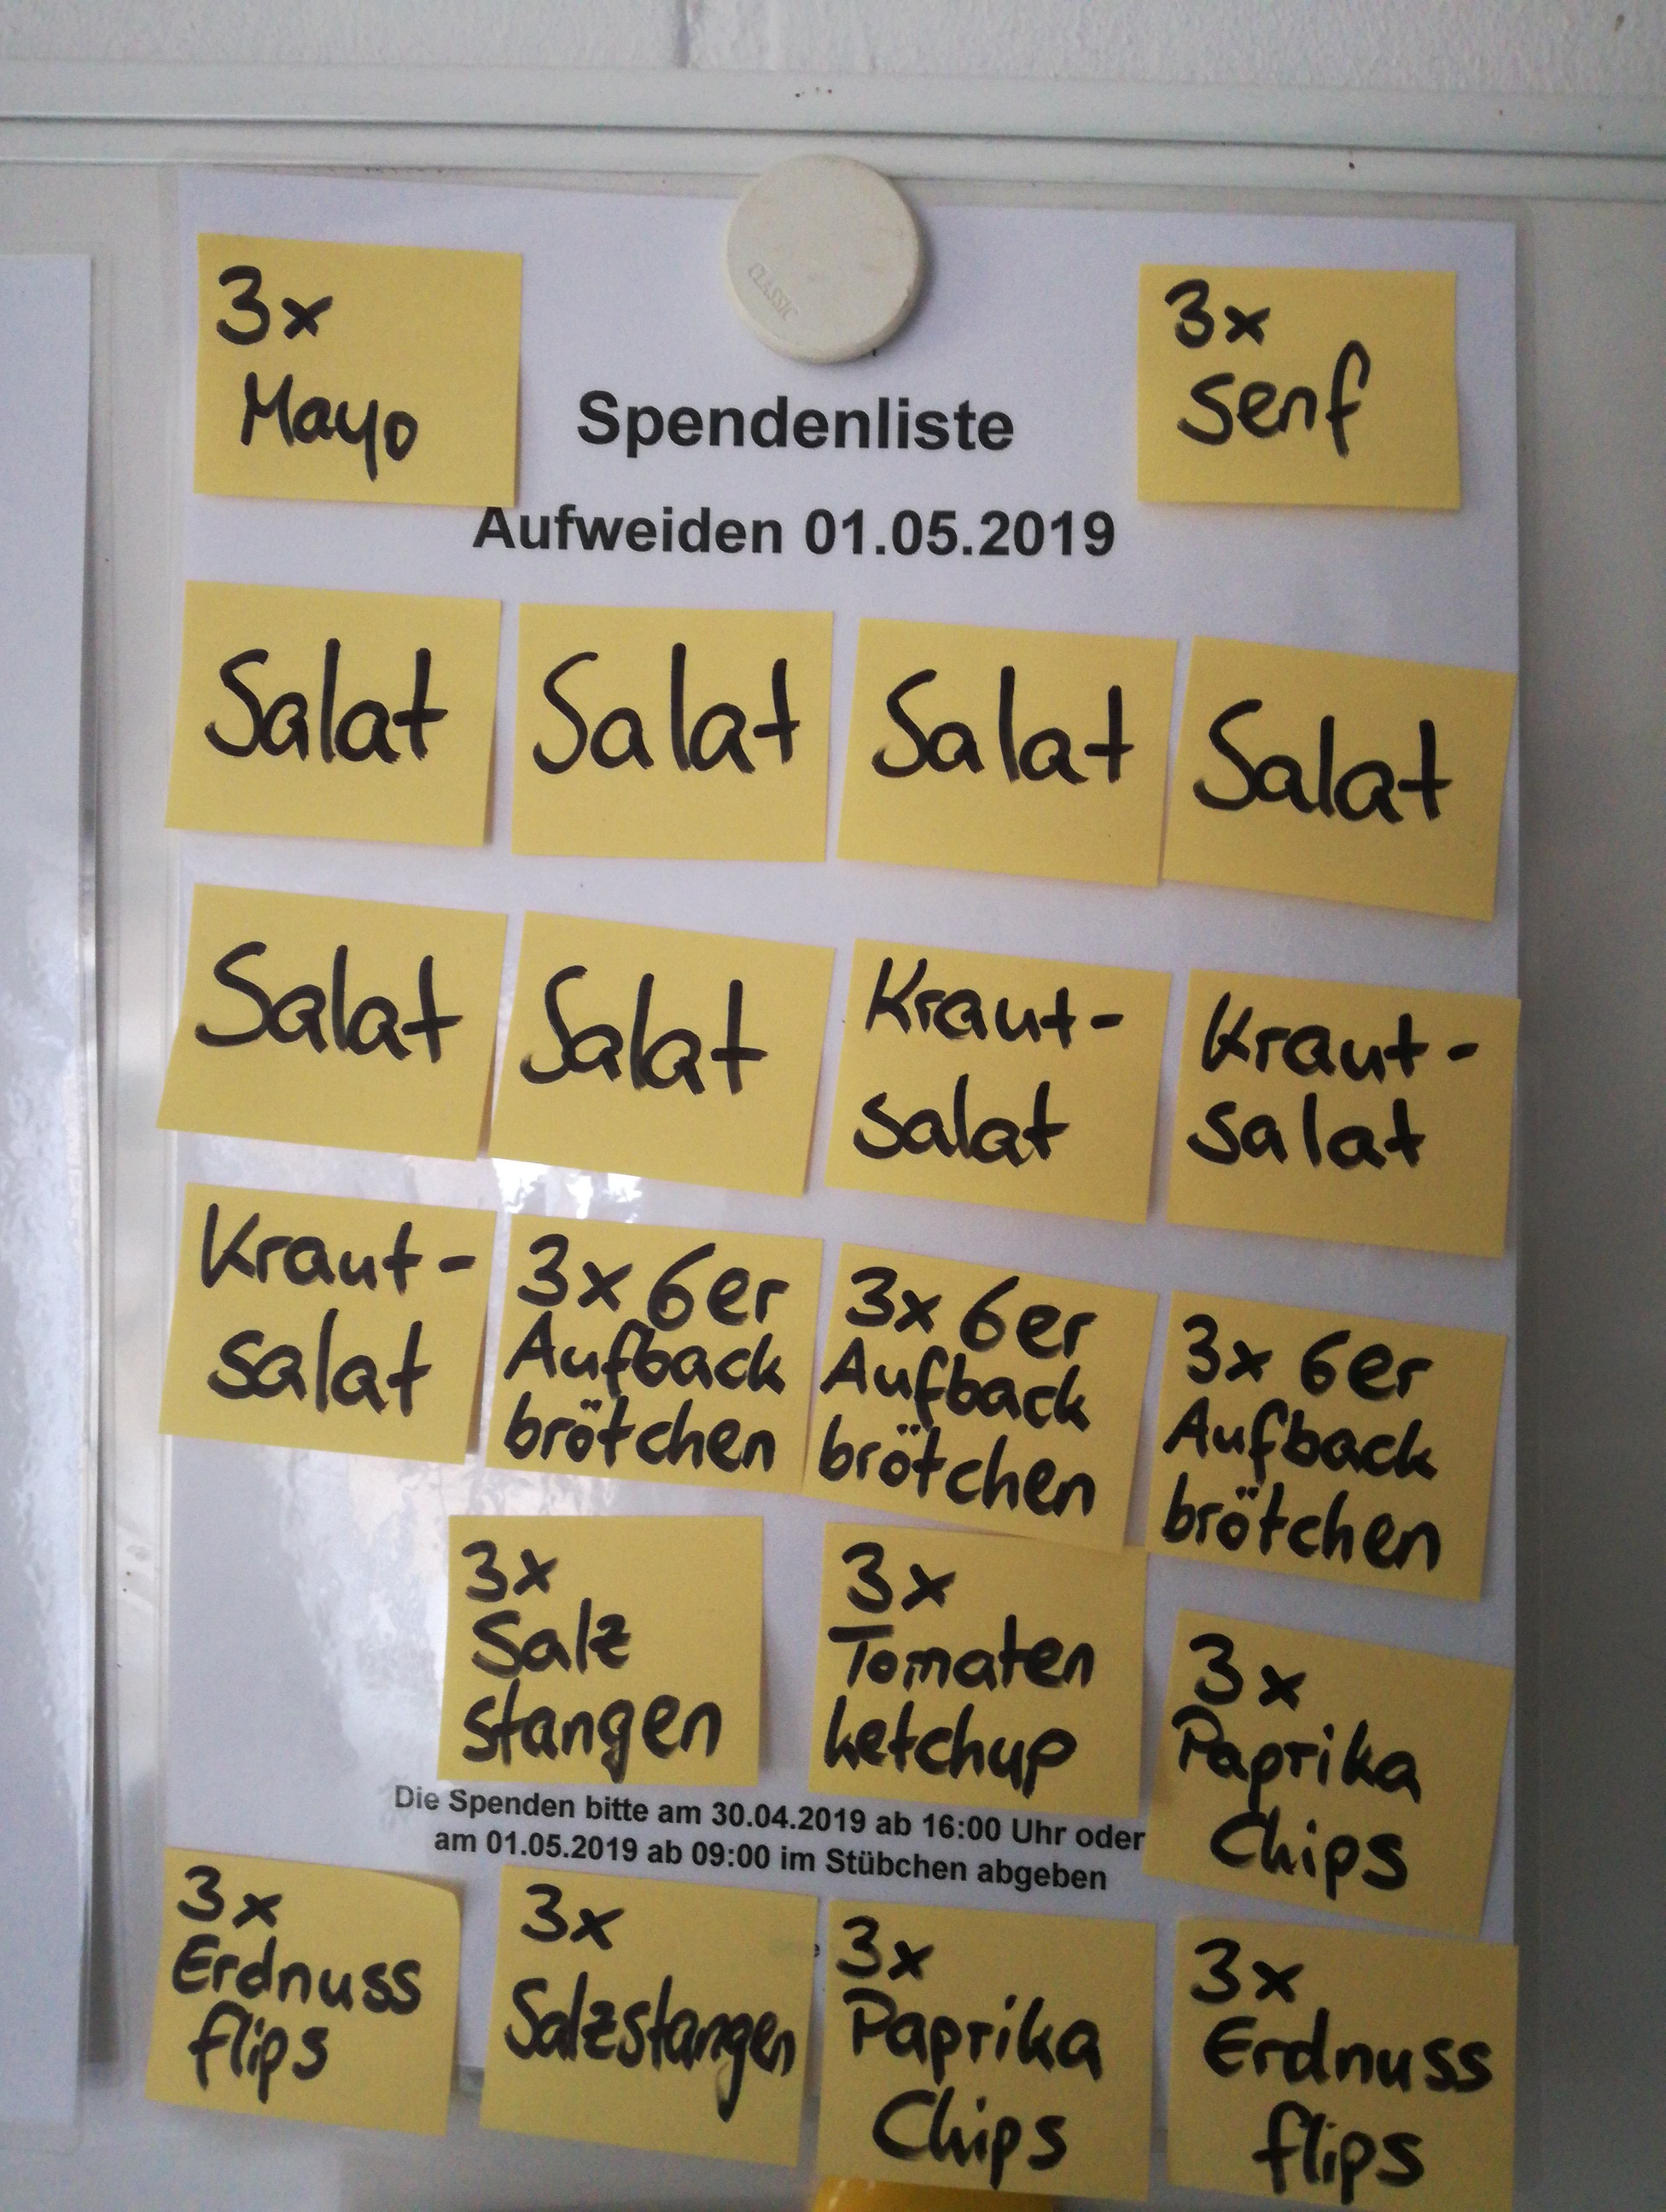 CLASSIC
3x
Mayo
3x
Senf
Spendenliste
Aufweiden 01.05.2019
Salat
Salat
Salat
Salat
Salat
Salat
Kraut-
salat
Kraut-
salat
Kraut-
salat
3x 6er
Aufback
brötchen
3x 6er
Aufback
brötchen
3x 6er
Aufback
brötchen
3x
Salz
stangen
3x
Tomaten
ketchup
3x
Paprika
Chips
Die Spenden bitte am 30.04.2019 ab 16:00 Uhr oder
am 01.05.2019 ab 09:00 im Stübchen abgeben
3x
Erdnuss
flips
3x
Salzstangen
3x
Paprika
Chips
3x
Erdnuss
flips